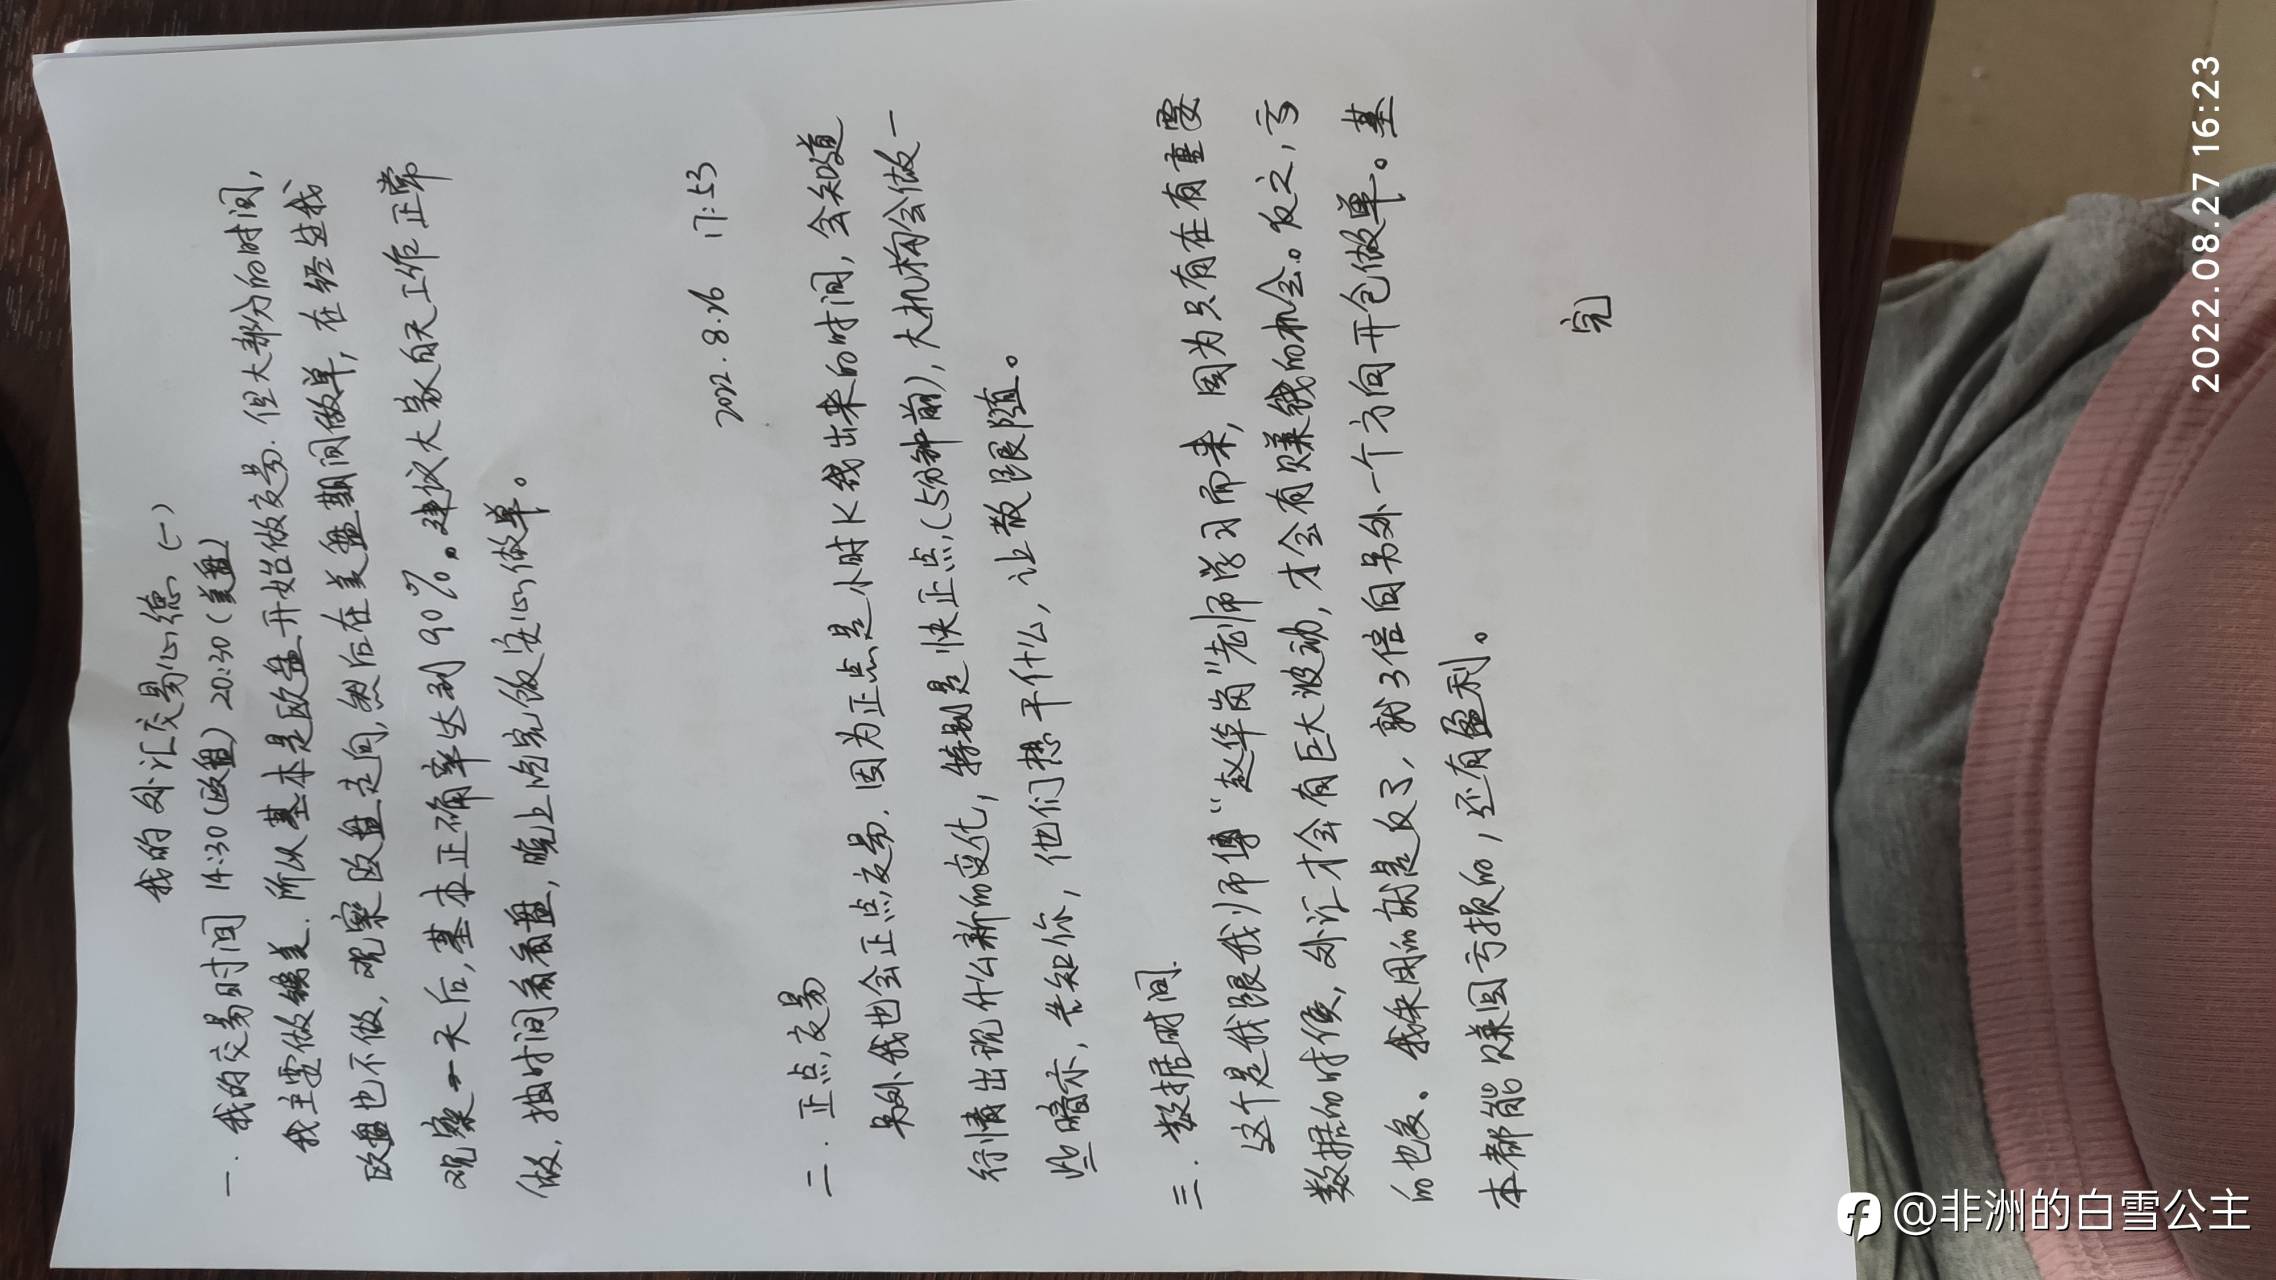 我的外汇交易心德（一）
一. 我的交易时间 14:30(欧盘) 20:30(美盘)
我主要做镑美. 所以基本是欧盘开始做交易. 但大部分的时间,
欧盘也不做, 观察欧盘走向, 然后在美盘期间做单, 在经过我
观察一天后, 基本正确率达到90%。建议大家白天工作正常
做, 抽时间看看盘, 晚上吃完饭安心做单。
2022.8.26 17:53
二. 正点交易
另外我也会正点交易. 因为正点是小时K线出来的时间, 会知道
行情出现什么新的变化, 特别是快正点(5分钟前), 大机构会做一
些暗示, 告知你, 他们想干什么, 让散跟随。
三. 数据时间.
这个是我跟我师傅“赵华岗”老师学习而来, 因为只有在有重要
数据的时候, 外汇才会有巨大波动, 才会有赚钱的机会。反之, 亏
的也多。我采用的就是反了, 就3倍向另外一个方向开仓做单。基
本都能赚回亏损的, 还有盈利。
完
2022.08.27 16:23
@非洲的白雪公主